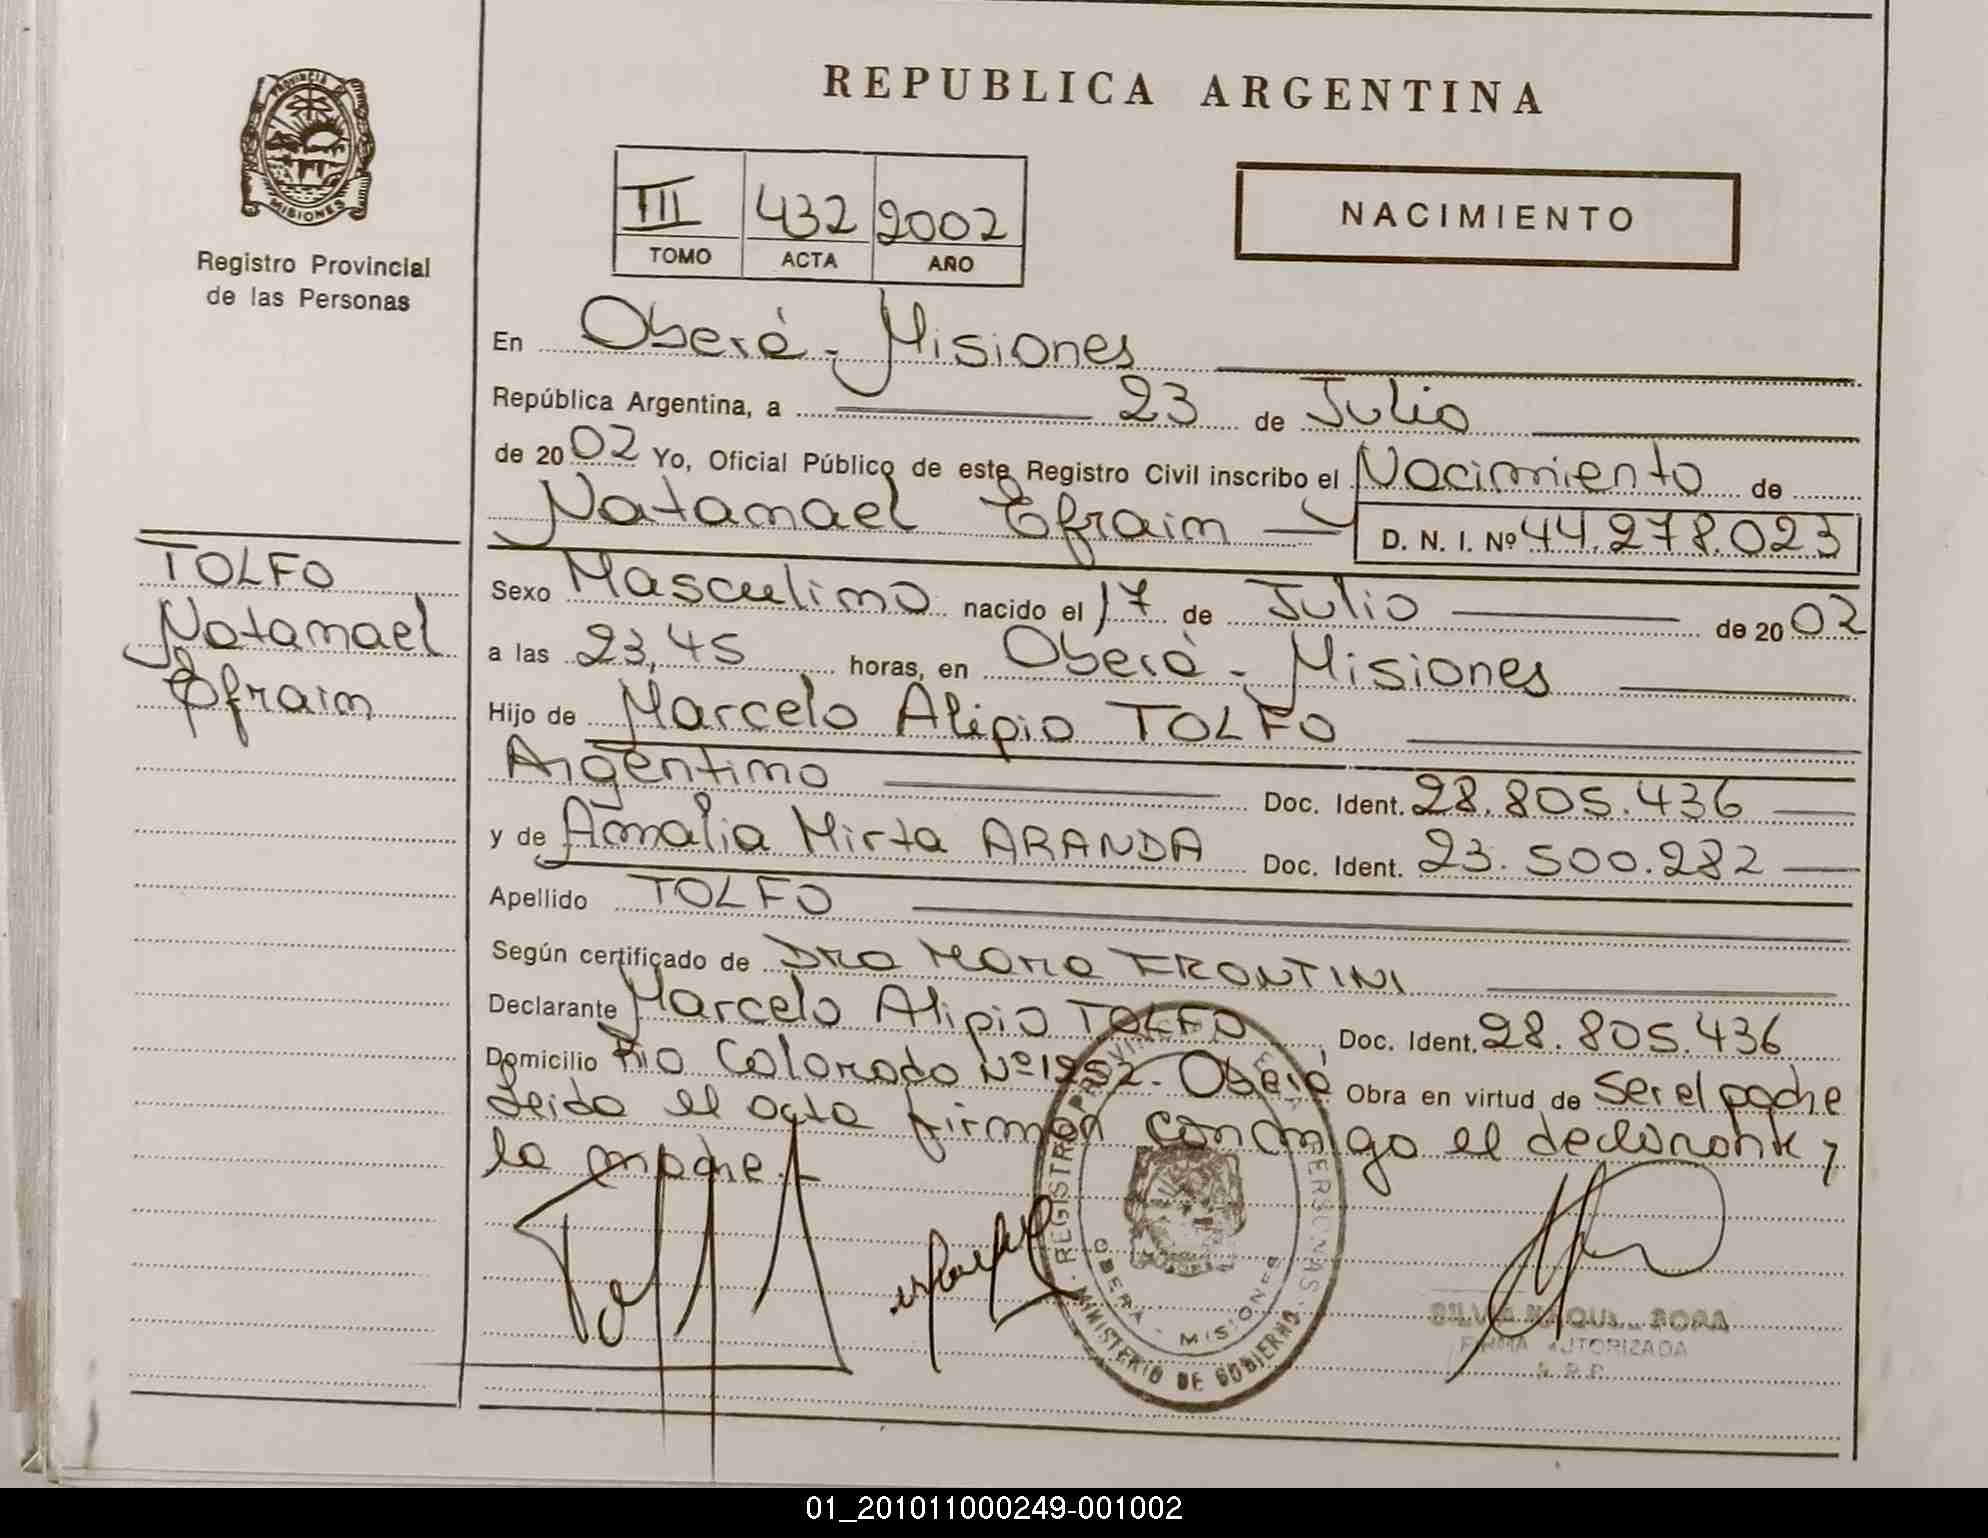 REPUBLICA ARGENTINA
PROVINCIA DE
MISIONES
Registro Provincial
de las Personas
III 432 2002
TOMO ACTA AÑO
NACIMIENTO
En Oberá - Misiones
República Argentina, a 23 de Julio
de 2002 Yo, Oficial Público de este Registro Civil inscribo el Nacimiento de
Natanael Efraim D. N. I. Nº 44.278.023
TOLFO
Natanael
Efraim
Sexo Masculino nacido el 17 de Julio de 2002
a las 23,45 horas, en Oberá - Misiones
Hijo de Marcelo Alipio TOLFO
Argentino Doc. Ident. 28.805.436
y de Amalia Mirta ARANDA Doc. Ident. 23.500.282
Apellido TOLFO
Según certificado de Dra Maria FRONTINI
Declarante Marcelo Alipio TOLFO, Doc. Ident. 28.805.436
Domicilio Rio Colorado Nº 1952 - Oberá Obra en virtud de ser el padre
Leida el acta firman conmigo el declarante y
la madre.-
REGISTRO PROVINCIAL DE LAS PERSONAS
OBERA - MISIONES
MINISTERIO DE GOBIERNO
SILVIA
FIRMA AUTORIZADA
01_201011000249-001002